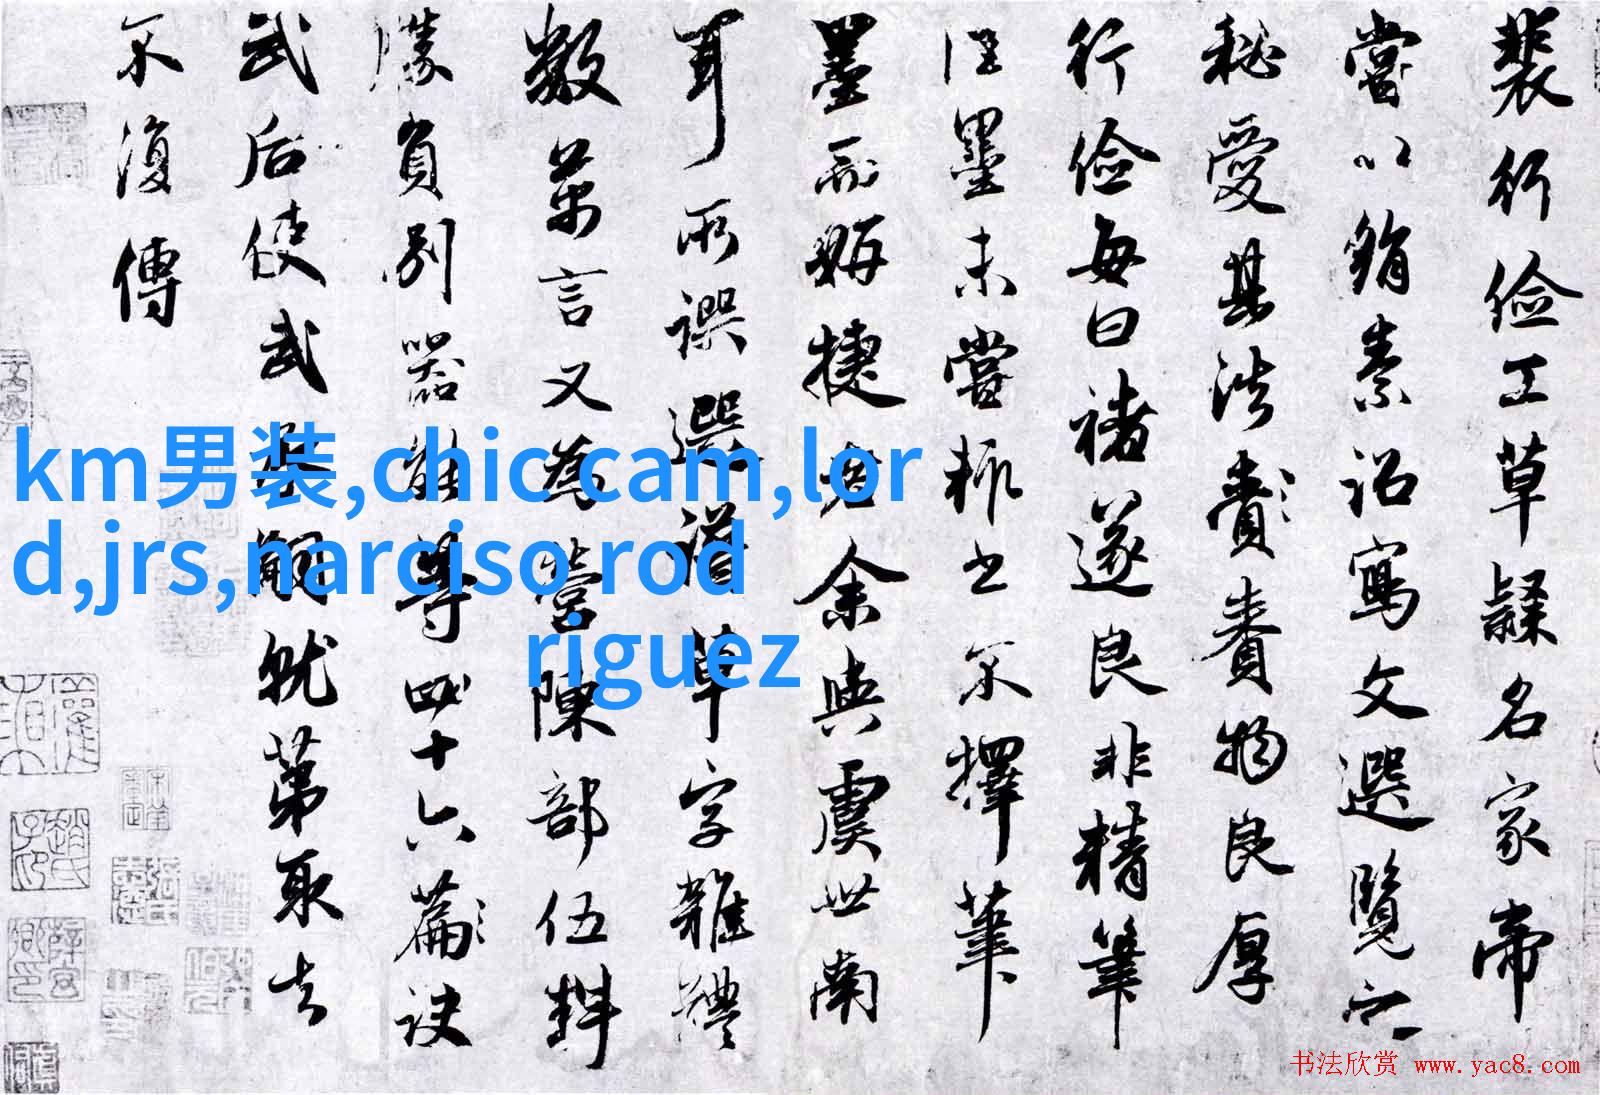 裴行俭工草隸名家帝
嘗以絹素詔寫文選覽之
秘愛其法賚賚物良厚
行俭每曰褚遂良非精筆
佳墨未嘗輒書不擇筆
墨而妍捷者余與虞世南
耳所譔選譜草字雜體
數萬言又為營陳部伍料
勝負別器能等四十六篇訣
武后使武承嗣就第取去
不復傳
km男装,chic cam,lor
d,jrs,narciso rod
riguez
书法欣赏 www.yac8.com